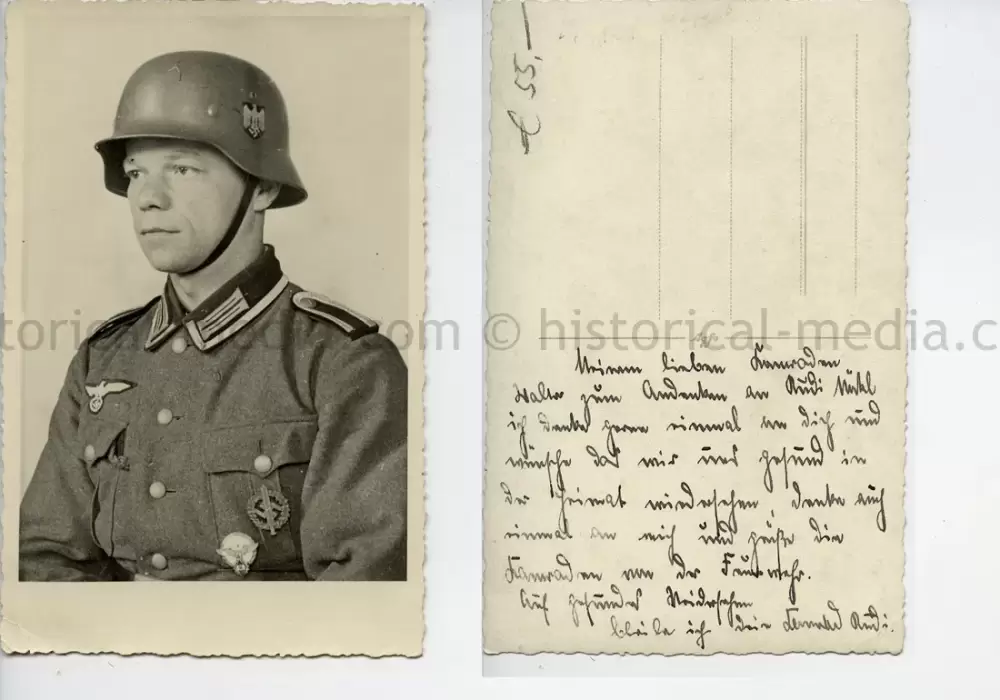 € 55,-
© historical-media.com
Meinem lieben Kamraden
Walter zum Andenken an Rudi
ich denke gerne einmal an dich und
wünsche das wir uns gesund in
der Heimat wiedersehen, denke auch
einmal an mich und grüße die
Kamraden von der Feuerwehr.
Auf gesundes Wiedersehen
bleibe ich dein Kamerad Rudi.